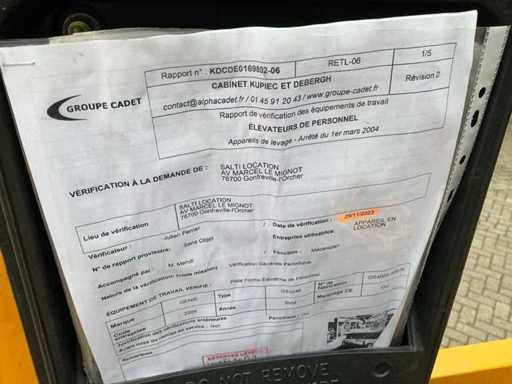 Rapport n° : KDCOE0169802-06
RETL-06
1/5
GROUPE CADET
CABINET KUPIEC ET DEBERGH
contact@alphacadet.fr / 01 45 91 20 43 / www.groupe-cadet.fr
Révision 2
Rapport de vérification des équipements de travail
ÉLÉVATEURS DE PERSONNEL
Appareils de levage - Arrêté du 1er mars 2004
VÉRIFICATION À LA DEMANDE DE :
SALTI LOCATION
AV MARCEL LE MIGNOT
76700 Gonfreville-l'Orcher
Lieu de vérification :
SALTI LOCATION
AV MARCEL LE MIGNOT
76700 Gonfreville-l'Orcher
Date de vérification :
29/11/2023
Vérificateur :
Julien
Entreprise utilisatrice :
APPAREIL EN LOCATION
N° de rapport provisoire :
Sans Objet
Accompagné par :
M.
Fonction :
Mécanicien
Nature de la vérification
Vérification Générale Périodique
ÉQUIPEMENT DE TRAVAIL VÉRIFIÉ :
Plate Forme Élévatrice de Personnel
Marque
GENIE
Type
Code entreprise
Année
Marquage CE
Oui
Remarques
DO NOT REMOVE